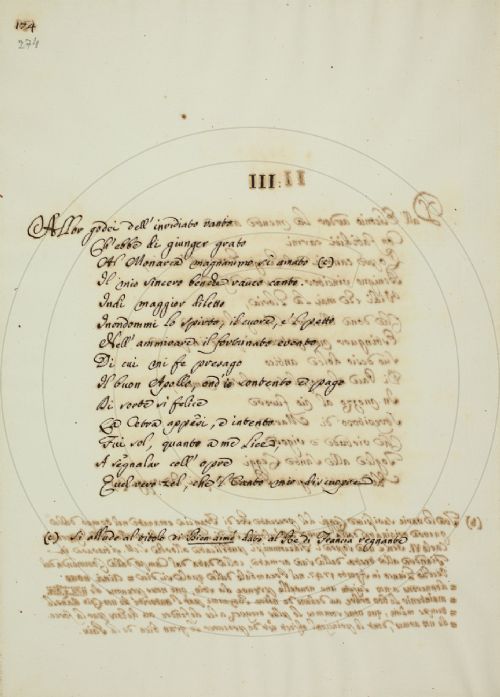 124
274
III.
Allor godei dell' invidiato vanto
Ch' ebbe di giunger grato
Al Monarca magnanimo sì amato (c)
Il mio sincero benchè rauco canto.
Indi maggior diletto
Inondommi lo spirto, il cuore, e 'l petto
Nell' ammirare il fortunato evento,
Di cui mi fe presago
Il buon Apollo, ond' io contento e pago
Di sorte sì felice
La Cetra appesi, e intento
Fui sol, quanto a me lice,
A segnalar coll' opre
Quel vero zel, che 'l Canto mio discuopre.
(c) Si allude al titolo di Bien-aimé dato al Re di Francia regnante